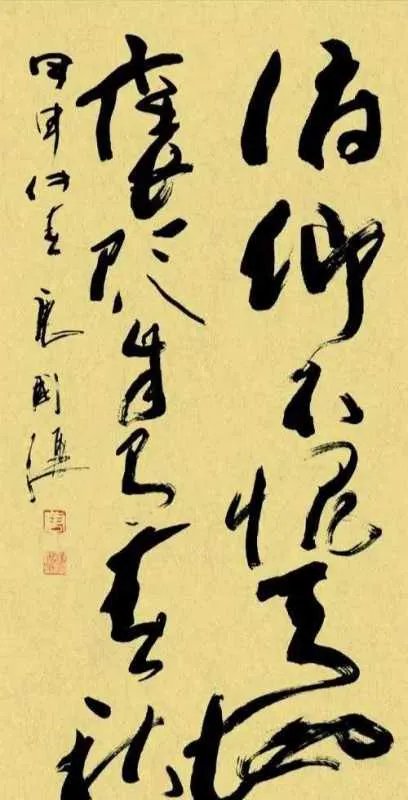 俯仰不愧天地
褒贬自有春秋
甲申仲春